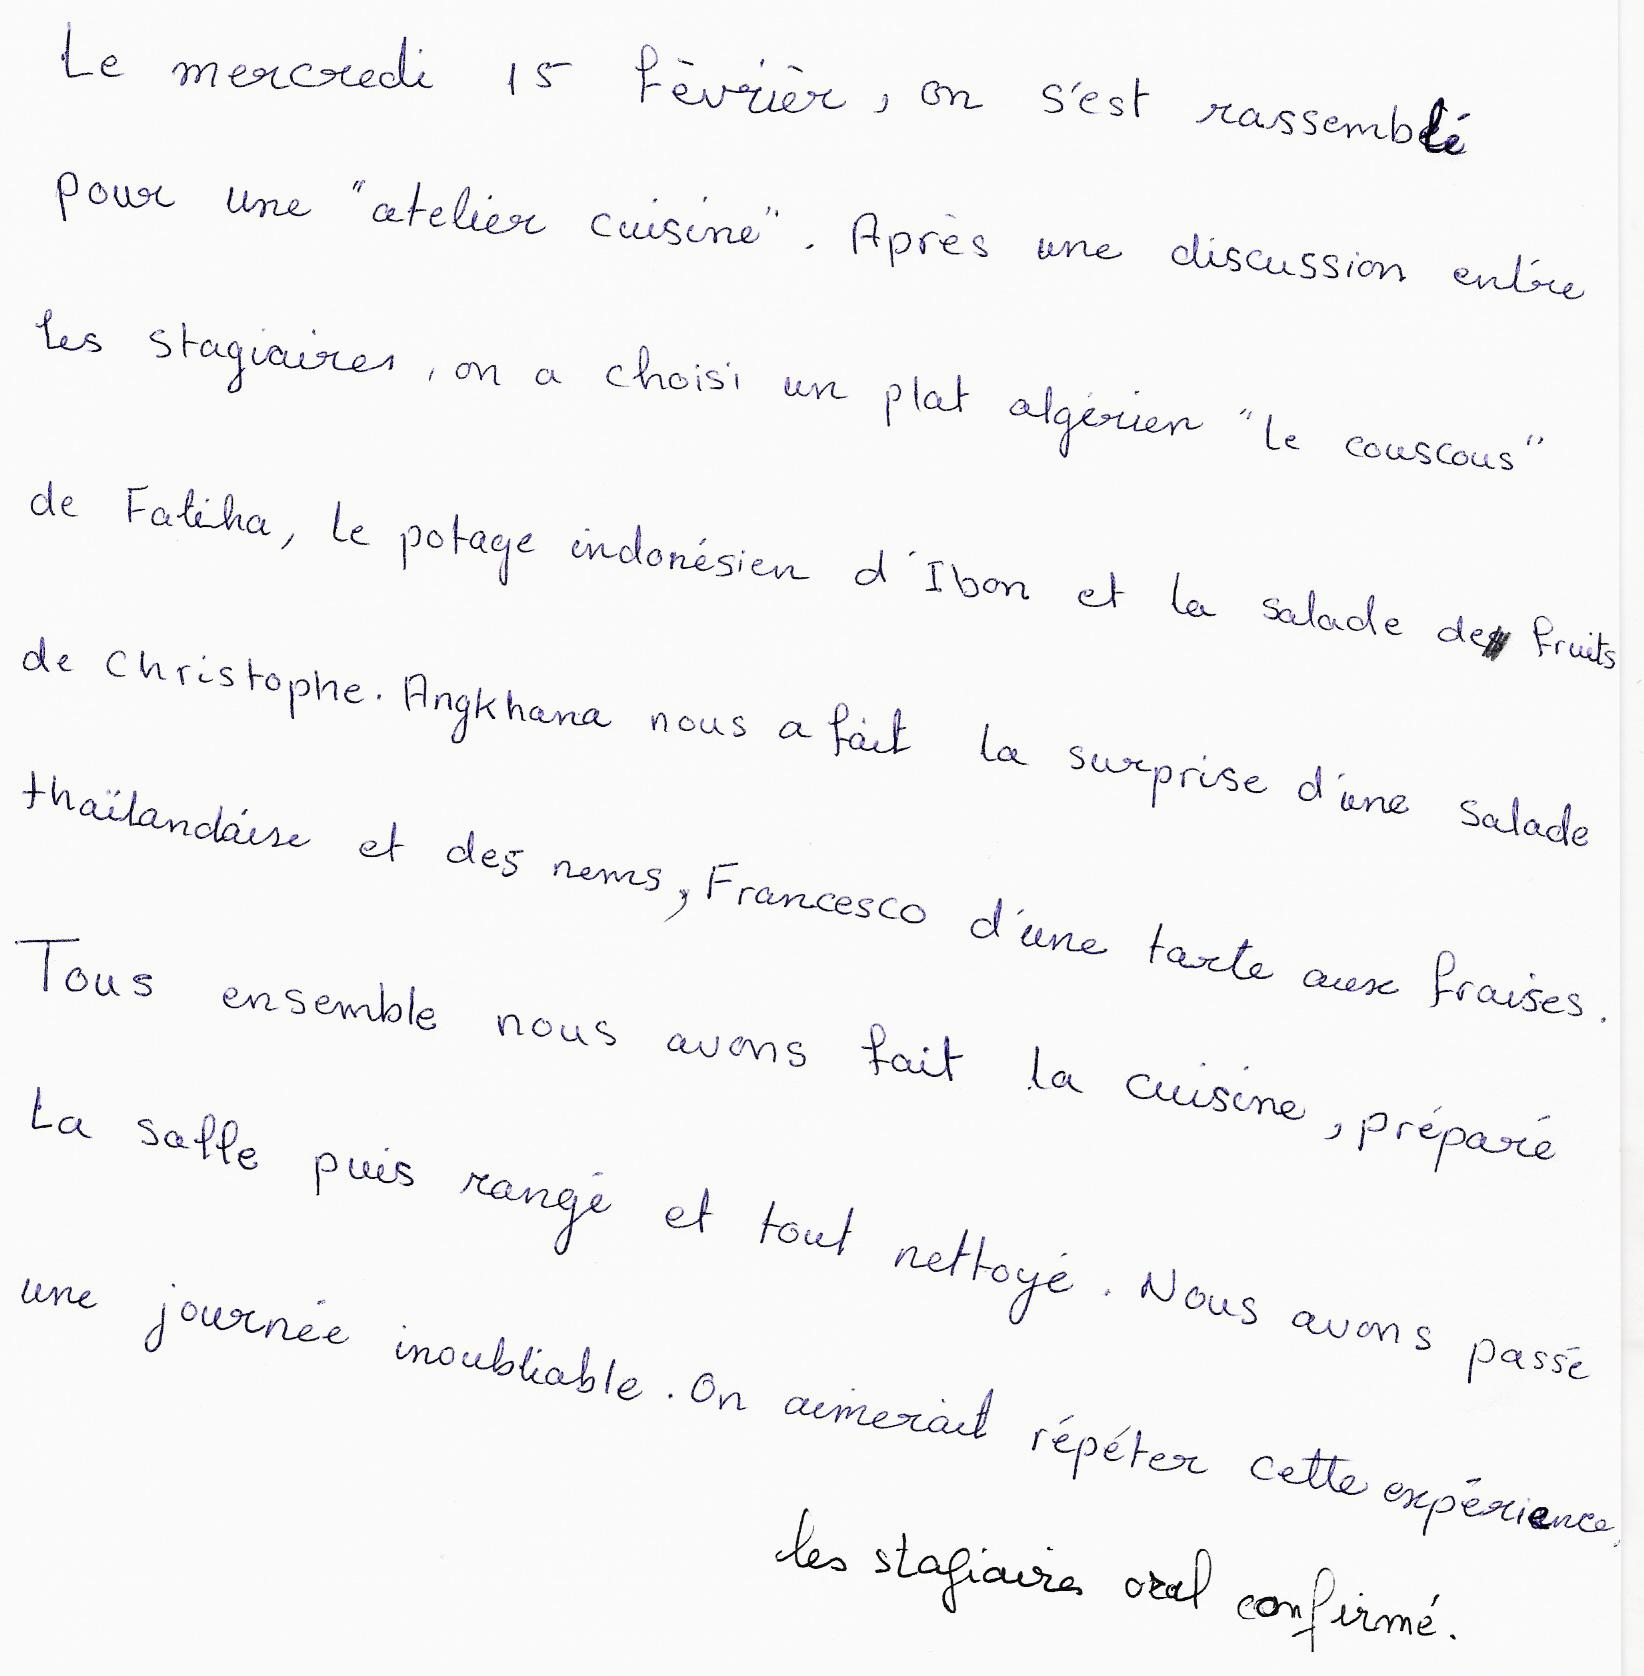 Le mercredi 15 fèvrièr, on s'est rassemblé
pour une "atelier cuisine". Après une discussion entre
les stagiaires, on a choisi un plat algérien "le couscous"
de Fatiha, le potage indonésien d'Ibon et la salade de fruits
de Christophe. Angkhana nous a fait la surprise d'une salade
thaïlandaise et des nems, Francesco d'une tarte aux fraises.
Tous ensemble nous avons fait la cuisine, préparé
la salle puis rangé et tout nettoyé. Nous avons passé
une journée inoubliable. On aimerait répéter cette expérience.
les stagiaires oral confirmé.